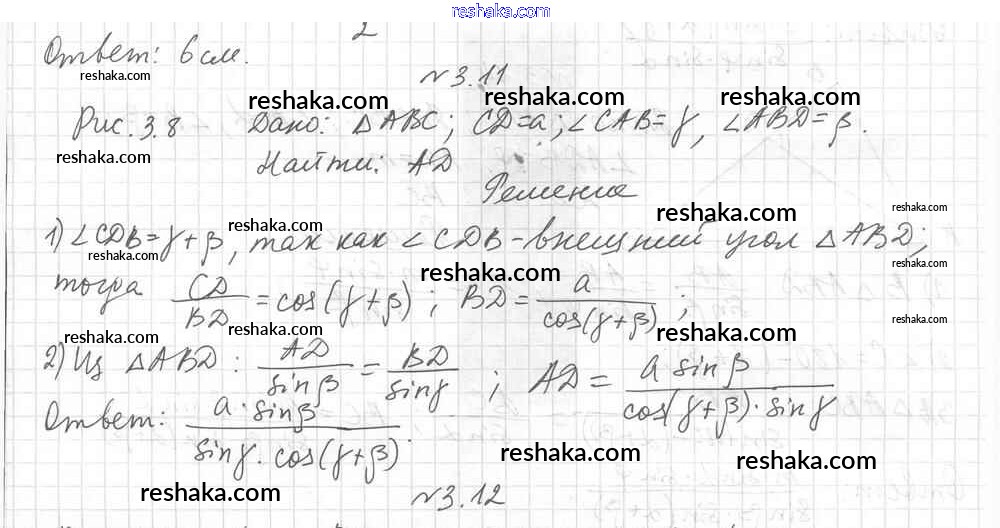 reshaka.com
2
Ответ: 6 см.
reshaka.com
№3.11
reshaka.com reshaka.com reshaka.com
Рис. 3.8 Дано: △ABC; CD=a; ∠CAB=γ, ∠ABD=β.
reshaka.com
Найти: AD
Решение
reshaka.com reshaka.com
reshaka.com
1) ∠CDB=γ+β, так как ∠CDB-внешний угол △ABD;
reshaka.com reshaka.com
reshaka.com
тогда CD/BD = cos(γ+β); BD = a/cos(γ+β);
reshaka.com reshaka.com reshaka.com reshaka.com
2) Из △ABD: AD/sinβ = BD/sinγ; AD = a sinβ/cos(γ+β)·sinγ
Ответ: a·sinβ/sinγ·cos(γ+β).
reshaka.com reshaka.com
reshaka.com
№3.12